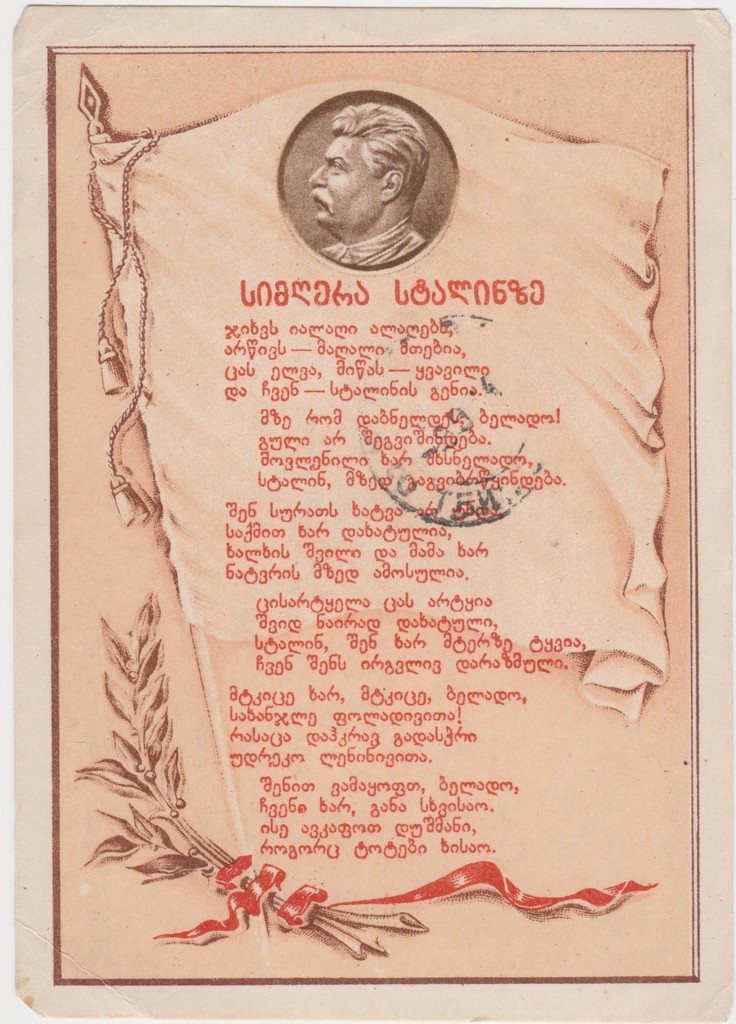 სიმღერა სტალინზე
ჯიხვს იალაღი ალაღებს,
არწივს — მაღალი მთებია,
ცას ელვა, მიწას — ყვავილი
და ჩვენ — სტალინის გენია.
მზე რომ დაბნელდეს, ბელადო!
გული არ შეგვიშინდება.
მოვლენილი ხარ მხსნელადო,
სტალინ, მზედ გაგვიბრწყინდება.
შენ სურათს ხატვა არ უნდა
საქმით ხარ დახატულია,
ხალხის შვილი და მამა ხარ
ნატვრის მზედ ამოსულია.
ცისარტყელა ცას არტყია
შვიდ ნაირად დახატული,
სტალინ, შენ ხარ მტერზე ტყვია,
ჩვენ შენს ირგვლივ დარაზმული.
მტკიცე ხარ, მტკიცე, ბელადო,
სახანჯლე ფოლადივითა!
რასაცა დაჰკრავ გადასჭრი
უდრეკო ლენინივითა.
შენით ვამაყოფთ, ბელადო,
ჩვენი ხარ, განა სხვისაო.
ისე ავკაფოთ დუშმანი,
როგორც ტოტები ხისაო.